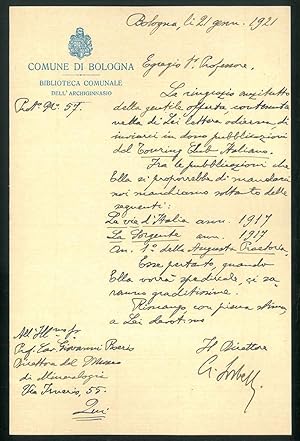 Bologna, li 21 genn. 1921
COMUNE DI BOLOGNA
BIBLIOTECA COMUNALE
DELL'ARCHIGINNASIO
Prot. Nº 57.
Egregio Sr. Professore,
La ringrazio anzitutto
della gentile offerta contenuta
nella di Lei lettera odierna, di
inviarci in dono pubblicazioni
del Touring Club Italiano.
Fra le pubblicazioni che
Ella si proporrebbe di mandarci
noi manchiamo soltanto delle
seguenti:
Le vie d'Italia ann. 1917
La Sorgente ann. 1917
An. 1º della Augusta Praetoria.
Esse pertanto, quando
Ella vorrà spedircele, ci sa-
ranno graditissime.
Rimango, con piena stima
a Lei devotissimo
Il Direttore
A. Sorbelli
All'Ill.mo Sr.
Prof. Cav. Giovanni Boeris
Direttore del Museo
di Mineralogia
Via Irnerio, 55.
Qui